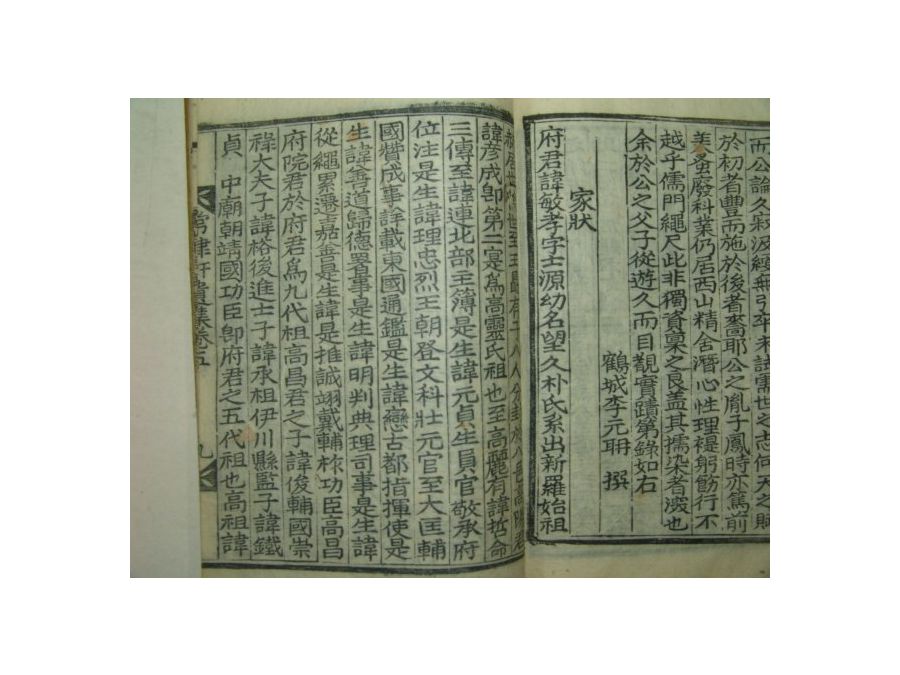 而公論久寂汲綆無引卒未試需世之志何天之賦
於初者豊而施於後者嗇耶公之胤子鳳時亦篤前
美蚤廢科業仍居西山精舍潛心性理褆躬飭行不
越乎儒門繩尺此非獨資稟之良盖其擩染者深也
余於公之父子從遊久而目覩實蹟第錄如右
鶴城李元聃 撰
家狀
府君諱敏孝字士源幼名望久朴氏系出新羅始祖
諱彦成卽第二寔爲高靈氏祖也至高麗有諱哲命
三傳至諱連北部主簿是生諱元貞生員官敬承府
位注是生諱理忠烈王朝登文科壯元官至大匡輔
國贊成事詳載東國通鑑是生諱戀古都指揮使是
生諱善道歸德署事是生諱明判典理司事是生諱
從繩累遷嘉善是生諱是推誠翊戴輔祚功臣高昌
府院君於府君爲九代祖高昌君之子諱俊輔國崇
祿大夫子諱格後進士子諱承祖伊川縣監子諱鐵
貞 中廟朝靖國功臣卽府君之五代祖也高祖諱
軒遺集卷五
九